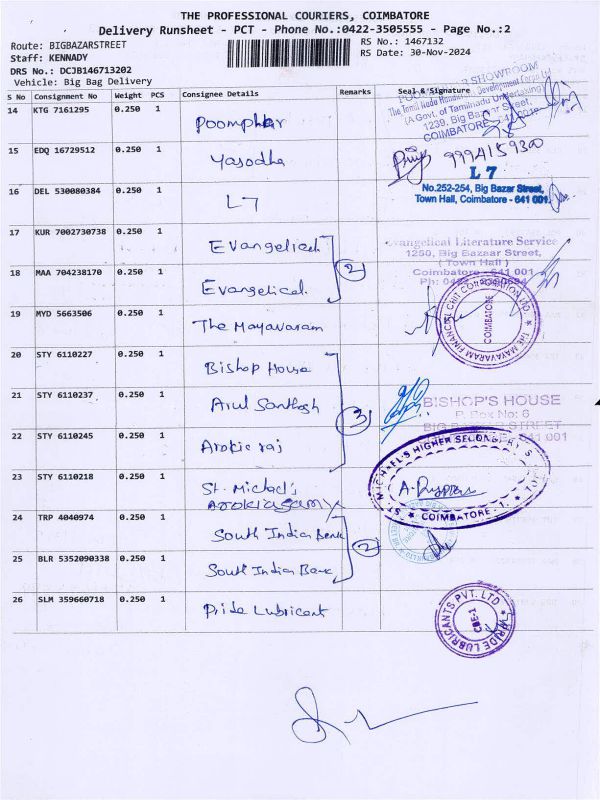 THE PROFESSIONAL COURIERS, COIMBATORE
Delivery Runsheet - PCT - Phone No.:0422-3505555 - Page No.:2
Route: BIGBAZARSTREET
RS No.: 1467132
Staff: KENNADY
RS Date: 30-Nov-2024
DRS No.: DCJB146713202
Vehicle: Big Bag Delivery
S No Consignment No Weight PCS Consignee Details Remarks Seal & Signature
14 KTG 7161295 0.250 1 Poomphar
SHOWROOM
Development Corp Ltd
(A Govt. of Tamilnadu Undertaking)
1239, Big Bazar Street,
COIMBATORE
15 EDQ 16729512 0.250 1 Yasodha
9994159300
16 DEL 530080384 0.250 1 L7
L 7
No.252-254, Big Bazar Street,
Town Hall, Coimbatore - 641 001.
17 KUR 7002730738 0.250 1 Evangelical
2
Evangelical Literature Service
1250, Big Bazaar Street,
(Town Hall)
Coimbatore - 641 001
18 MAA 704238170 0.250 1 Evangelical
19 MYD 5663506 0.250 1 The Mayavaram
THE MAYAVARAM FINANCIAL CHIT CORPORATION LTD.
COIMBATORE
20 STY 6110227 0.250 1 Bishop House
21 STY 6110237 0.250 1 Arul Santhosh
3
BISHOP'S HOUSE
P. Box No: 6
BIG BAZAR STREET
641 001
22 STY 6110245 0.250 1 Arokia raj
23 STY 6110218 0.250 1 St. Michael's
Arokiasamy
ST. MICHAEL'S HIGHER SECONDARY SCHOOL
COIMBATORE - 1.
24 TRP 4040974 0.250 1 South Indian Bank
2
25 BLR 5352090338 0.250 1 South Indian Bank
26 SLM 359660718 0.250 1 Pride Lubricant
PRIDE LUBRICANTS PVT. LTD
CBE-1